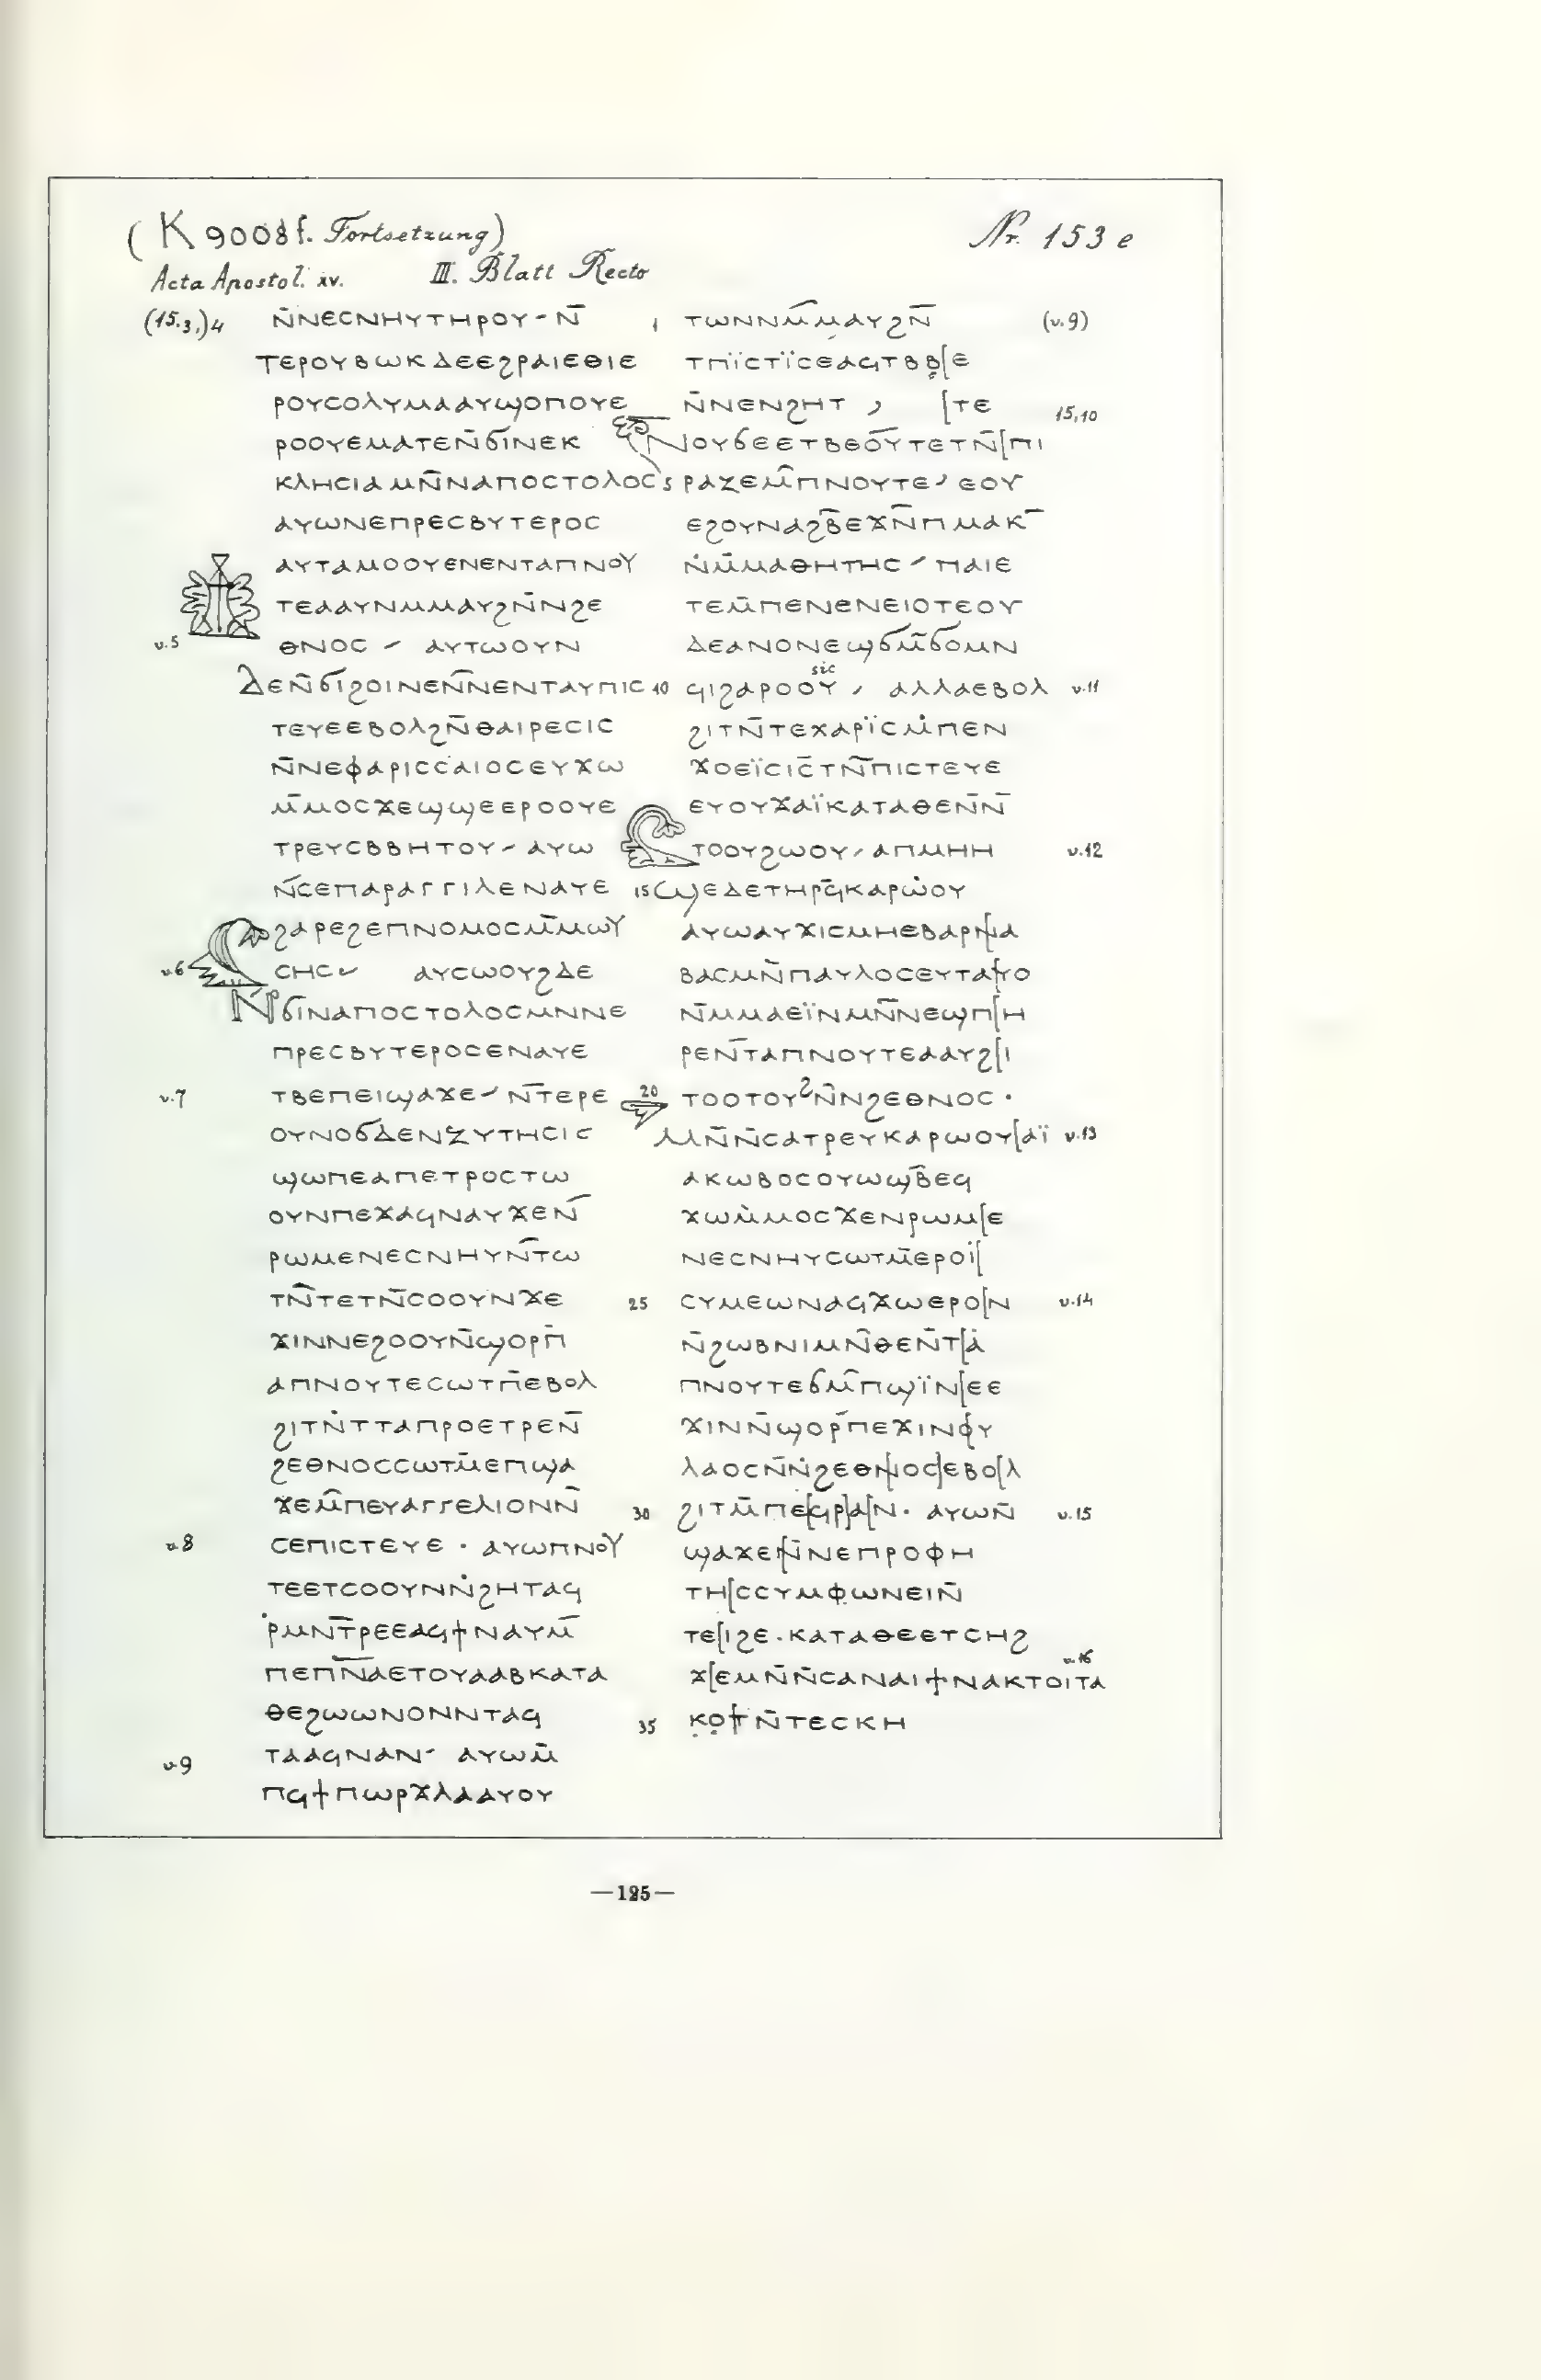 (K 9008 f. Fortsetzung)
Nr. 153 e
Acta Apostol. xv. III. Blatt Recto
(15.3,)4 ⲛ̄ⲛⲉⲥⲛⲏⲩⲧⲏⲣⲟⲩ - ⲛ̄
ⲧⲉⲣⲟⲩⲃⲱⲕⲇⲉⲉϩⲣⲁⲓⲉⲑⲓⲉ
ⲣⲟⲩⲥⲟⲗⲩⲙⲁⲁⲩϣⲟⲡⲟⲩⲉ
ⲣⲟⲟⲩⲉⲙⲁⲧⲉⲛ̄ϭⲓⲛⲉⲕ
ⲕⲗⲏⲥⲓⲁⲙⲛ̄ⲛⲁⲡⲟⲥⲧⲟⲗⲟⲥ
ⲁⲩⲱⲛⲉⲡⲣⲉⲥⲃⲩⲧⲉⲣⲟⲥ
ⲁⲩⲧⲁⲙⲟⲟⲩⲉⲛⲉⲛⲧⲁⲡⲛⲟⲩ
ⲧⲉⲁⲁⲩⲛⲙⲙⲁⲩϩⲛ̄ⲛϩⲉ
v.5 ⲑⲛⲟⲥ - ⲁⲩⲧⲱⲟⲩⲛ
ⲇⲉⲛ̄ϭⲓϩⲟⲓⲛⲉⲛ̄ⲛⲉⲛⲧⲁⲩⲡⲓⲥ
ⲧⲉⲩⲉⲉⲃⲟⲗϩⲛ̄ⲑⲁⲓⲣⲉⲥⲓⲥ
ⲛ̄ⲛⲉⲫⲁⲣⲓⲥⲥⲁⲓⲟⲥⲉⲩϫⲱ
ⲙ̄ⲙⲟⲥϫⲉϣϣⲉⲉⲣⲟⲟⲩⲉ
ⲧⲣⲉⲩⲥⲃⲃⲏⲧⲟⲩ - ⲁⲩⲱ
ⲛ̄ⲥⲉⲡⲁⲣⲁⲅⲅⲓⲗⲉⲛⲁⲩⲉ
ϩⲁⲣⲉϩⲉⲡⲛⲟⲙⲟⲥⲙ̄ⲙⲱⲩ
v.6 ⲥⲏⲥ - ⲁⲩⲥⲱⲟⲩϩⲇⲉ
ⲛ̄ϭⲓⲛⲁⲡⲟⲥⲧⲟⲗⲟⲥⲙⲛⲛⲉ
ⲡⲣⲉⲥⲃⲩⲧⲉⲣⲟⲥⲉⲛⲁⲩⲉ
v.7 ⲧⲃⲉⲡⲉⲓϣⲁϫⲉ - ⲛ̄ⲧⲉⲣⲉ
ⲟⲩⲛⲟϭⲇⲉⲛⲍⲩⲧⲏⲥⲓⲥ
ϣⲱⲡⲉⲁⲡⲉⲧⲣⲟⲥⲧⲱ
ⲟⲩⲛⲡⲉϫⲁϥⲛⲁⲩϫⲉⲛ̄
ⲣⲱⲙⲉⲛⲉⲥⲛⲏⲩⲛ̄ⲧⲱ
ⲧⲛ̄ⲧⲉⲧⲛ̄ⲥⲟⲟⲩⲛϫⲉ
ϫⲓⲛⲛⲉϩⲟⲟⲩⲛ̄ϣⲟⲣⲡ̄
ⲁⲡⲛⲟⲩⲧⲉⲥⲱⲧⲡ̄ⲉⲃⲟⲗ
ϩⲓⲧⲛ̇ⲧⲧⲁⲡⲣⲟⲉⲧⲣⲉⲛ̄
ϩⲉⲑⲛⲟⲥⲥⲱⲧⲙ̄ⲉⲡϣⲁ
ϫⲉⲙ̄ⲡⲉⲩⲁⲅⲅⲉⲗⲓⲟⲛⲛ̄
v.8 ⲥⲉⲡⲓⲥⲧⲉⲩⲉ · ⲁⲩⲱⲡⲛⲟⲩ
ⲧⲉⲉⲧⲥⲟⲟⲩⲛⲛ̇ϩⲏⲧⲁϥ
ⲣ̇ⲙⲛ̄ⲧⲣⲉⲉⲁϥϯⲛⲁⲩⲙ̄
ⲡⲉⲡ̄ⲛ̄ⲁⲉⲧⲟⲩⲁⲁⲃⲕⲁⲧⲁ
ⲑⲉϩⲱⲱⲛⲟⲛⲛⲧⲁϥ
v.9 ⲧⲁⲁϥⲛⲁⲛ· ⲁⲩⲱⲙ̄
ⲡϥϯⲡⲱⲣϫⲗⲁⲁⲩⲟⲩ
1 ⲧⲱⲛⲛⲙ̄ⲙⲁⲩϩⲛ̄ (v.9)
ⲧⲡⲓ̈ⲥⲧⲓ̈ⲥⲉⲁϥⲧⲃⲃ̣[ⲉ
ⲛ̄ⲛⲉⲛϩⲏⲧ , [ⲧⲉ 15,10
ⲛⲟⲩϭⲉⲉⲧⲃⲉⲟⲩⲧⲉⲧⲛ̄[ⲡⲓ
5 ⲣⲁⲍⲉⲙ̄ⲡⲛⲟⲩⲧⲉ, ⲉⲟⲩ
ⲉϩⲟⲩⲛⲁϩⲃ̄ⲉϫⲛ̄ⲡⲙⲁⲕ̄
ⲛ̇ⲙ̄ⲙⲁⲑⲏⲧⲏⲥ - ⲡⲁⲓⲉ
ⲧⲉⲙ̄ⲡⲉⲛⲉⲛⲉⲓⲟⲧⲉⲟⲩ
ⲇⲉⲁⲛⲟⲛⲉϣϭⲙ̄ϭⲟⲙⲛ
sic
10 ϥⲓϩⲁⲣⲟⲟⲩ , ⲁⲗⲗⲁⲉⲃⲟⲗ v.11
ϩⲓⲧⲛ̄ⲧⲉⲭⲁⲣⲓ̈ⲥⲙ̇ⲡⲉⲛ
ϫⲟⲉⲓ̈ⲥⲓⲥ̄ⲧⲛ̄ⲡⲓⲥⲧⲉⲩⲉ
ⲉⲩⲟⲩϫⲁⲓ̈ⲕⲁⲧⲁⲑⲉⲛ̄ⲛ̄
ⲧⲟⲟⲩϩⲱⲟⲩ, ⲁⲡⲙⲏⲏ v.12
15 ϣⲉⲇⲉⲧⲏⲣϥ̄ⲕⲁⲣⲱ̇ⲟⲩ
ⲁⲩⲱⲁⲩϫⲓⲥⲙⲏⲉⲃⲁⲣ[ⲛ]ⲁ
ⲃⲁⲥⲙⲛ̄ⲡⲁⲩⲗⲟⲥⲉⲩⲧⲁ[ⲩ]ⲟ
ⲛ̄ⲙⲙⲁⲉⲓ̈ⲛⲙⲛ̄ⲛⲉϣⲡ[ⲏ
ⲣⲉⲛ̄ⲧⲁⲡⲛⲟⲩⲧⲉⲁⲁⲩϩ[ⲓ
20 ⲧⲟⲟⲧⲟⲩϩⲛ̄ⲛϩⲉⲑⲛⲟⲥ ·
ⲙⲛ̄ⲛ̄ⲥⲁⲧⲣⲉⲩⲕⲁⲣⲱⲟⲩ[ⲁⲓ̈ v.13
ⲁⲕⲱⲃⲟⲥⲟⲩⲱϣⲃ̄ⲉϥ
ϫⲱⲙ̇ⲙⲟⲥϫⲉⲛⲣⲱⲙ[ⲉ
ⲛⲉⲥⲛⲏⲩⲥⲱⲧⲙ̄ⲉⲣⲟⲓ̈[
25 ⲥⲩⲙⲉⲱⲛⲁϥϫⲱⲉⲣⲟ[ⲛ v.14
ⲛ̄ϩⲱⲃⲛⲓⲙⲛ̄ⲑⲉⲛ̄ⲧ[ⲁ̇
ⲡⲛⲟⲩⲧⲉϭⲙ̄ⲡϣⲓ̈ⲛ[ⲉⲉ
ϫⲓⲛⲛ̄ϣⲟⲣⲡ̄ⲉϫⲓⲛ[ⲟ]ⲩ
ⲗⲁⲟⲥⲛ̄ⲛ̇ϩⲉⲑ[ⲛ]ⲟⲥ]ⲉⲃⲟ[ⲗ
30 ϩⲓⲧⲙ̄ⲡⲉ[ϥⲣ]ⲁ[ⲛ · ⲁⲩⲱⲛ̄ v.15
ϣⲁϫⲉ[ⲛ̄]ⲛⲉⲡⲣⲟⲫⲏ
ⲧⲏ[ⲥⲥⲩⲙⲫⲱⲛⲉⲓⲛ̄
ⲧⲉ[ⲓϩⲉ · ⲕⲁⲧⲁⲑⲉⲉⲧⲥⲏϩ
ϫ[ⲉⲙⲛ̄ⲛ̄ⲥⲁⲛⲁⲓϯⲛⲁⲕⲧⲟⲓⲧⲁ v.16
35 ⲕ̣ⲟ̣ϯⲛ̄ⲧⲉⲥⲕⲏ
—125—